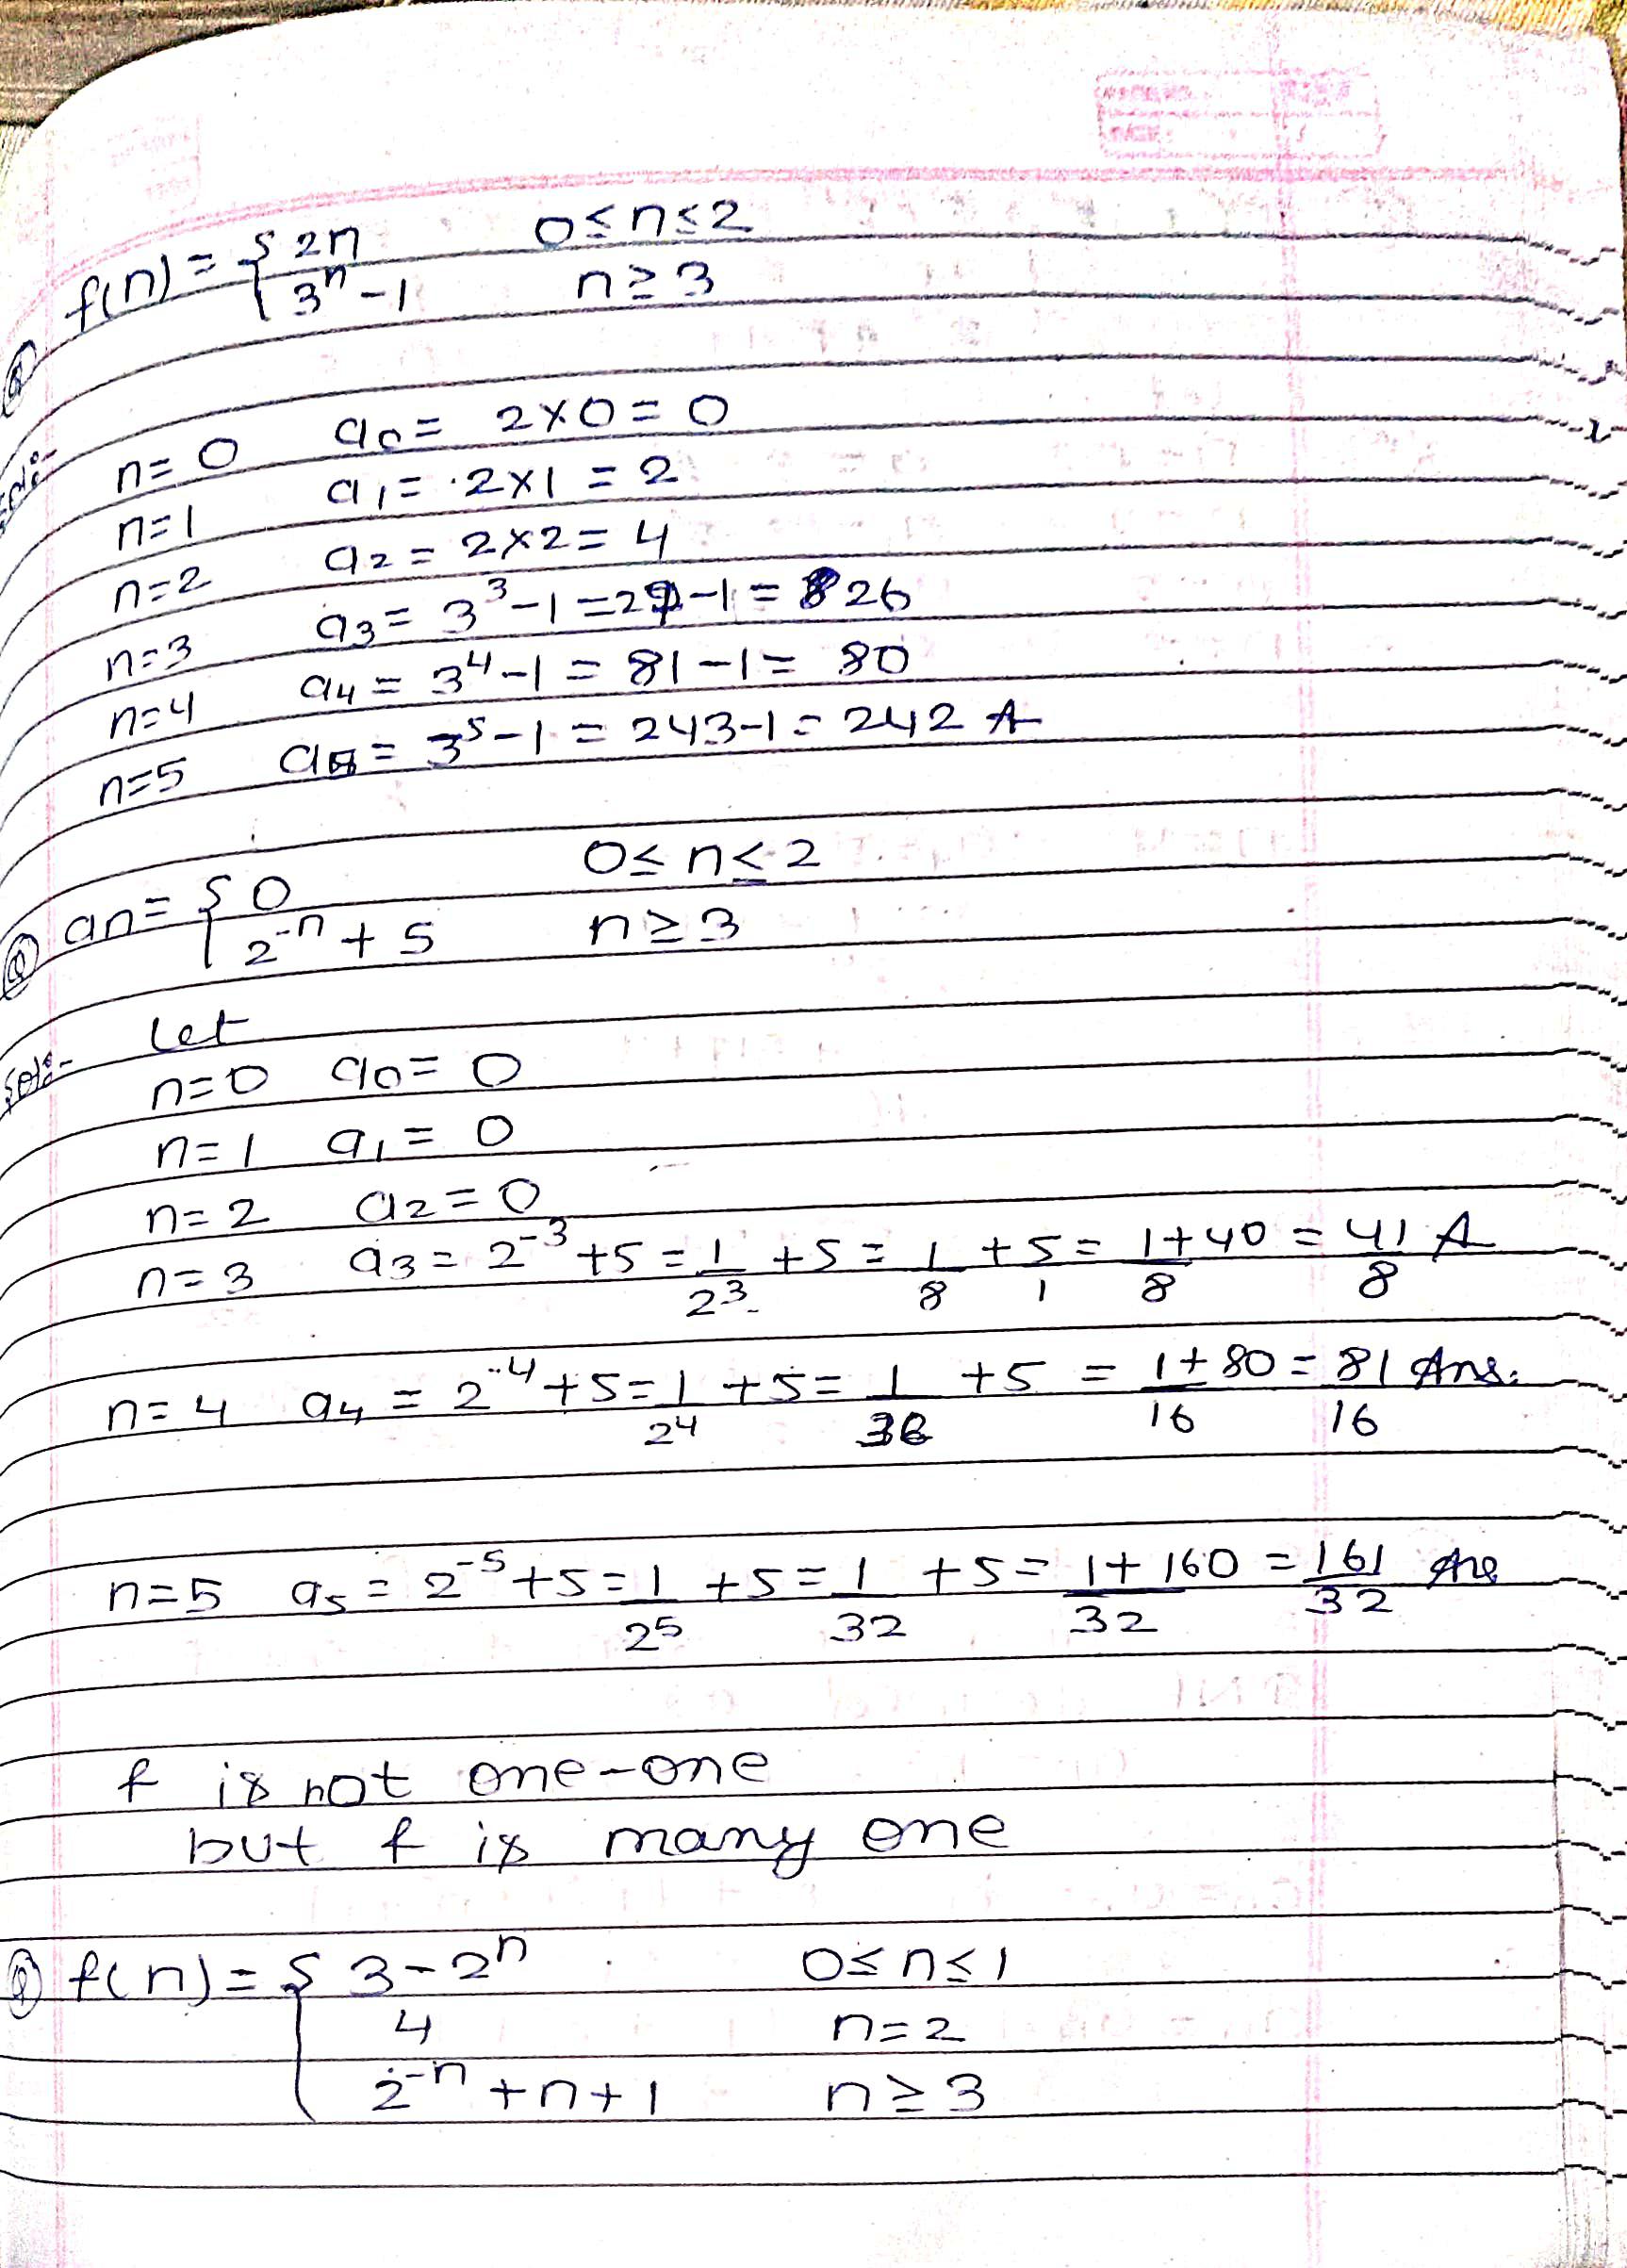 Q f(n) = { 2n 0 ≤ n ≤ 2
3ⁿ - 1 n ≥ 3
Sol:-
n = 0 a₀ = 2×0 = 0
n = 1 a₁ = 2×1 = 2
n = 2 a₂ = 2×2 = 4
n = 3 a₃ = 3³ - 1 = 27 - 1 = 26
n = 4 a₄ = 3⁴ - 1 = 81 - 1 = 80
n = 5 a₅ = 3⁵ - 1 = 243 - 1 = 242 A
Q an = { 0 0 ≤ n ≤ 2
2⁻ⁿ + 5 n ≥ 3
Sol:- Let
n = 0 a₀ = 0
n = 1 a₁ = 0
n = 2 a₂ = 0
n = 3 a₃ = 2⁻³ + 5 = 1/2³ + 5 = 1/8 + 5/1 = 1+40/8 = 41/8 A
n = 4 a₄ = 2⁻⁴ + 5 = 1/2⁴ + 5 = 1/ + 5 = 1+80/16 = 81/16 Ans.
n = 5 a₅ = 2⁻⁵ + 5 = 1/2⁵ + 5 = 1/32 + 5 = 1+160/32 = 161/32 Ans
f is not one-one
but f is many one
Q f(n) = { 3 - 2ⁿ 0 ≤ n ≤ 1
4 n = 2
2⁻ⁿ + n + 1 n ≥ 3